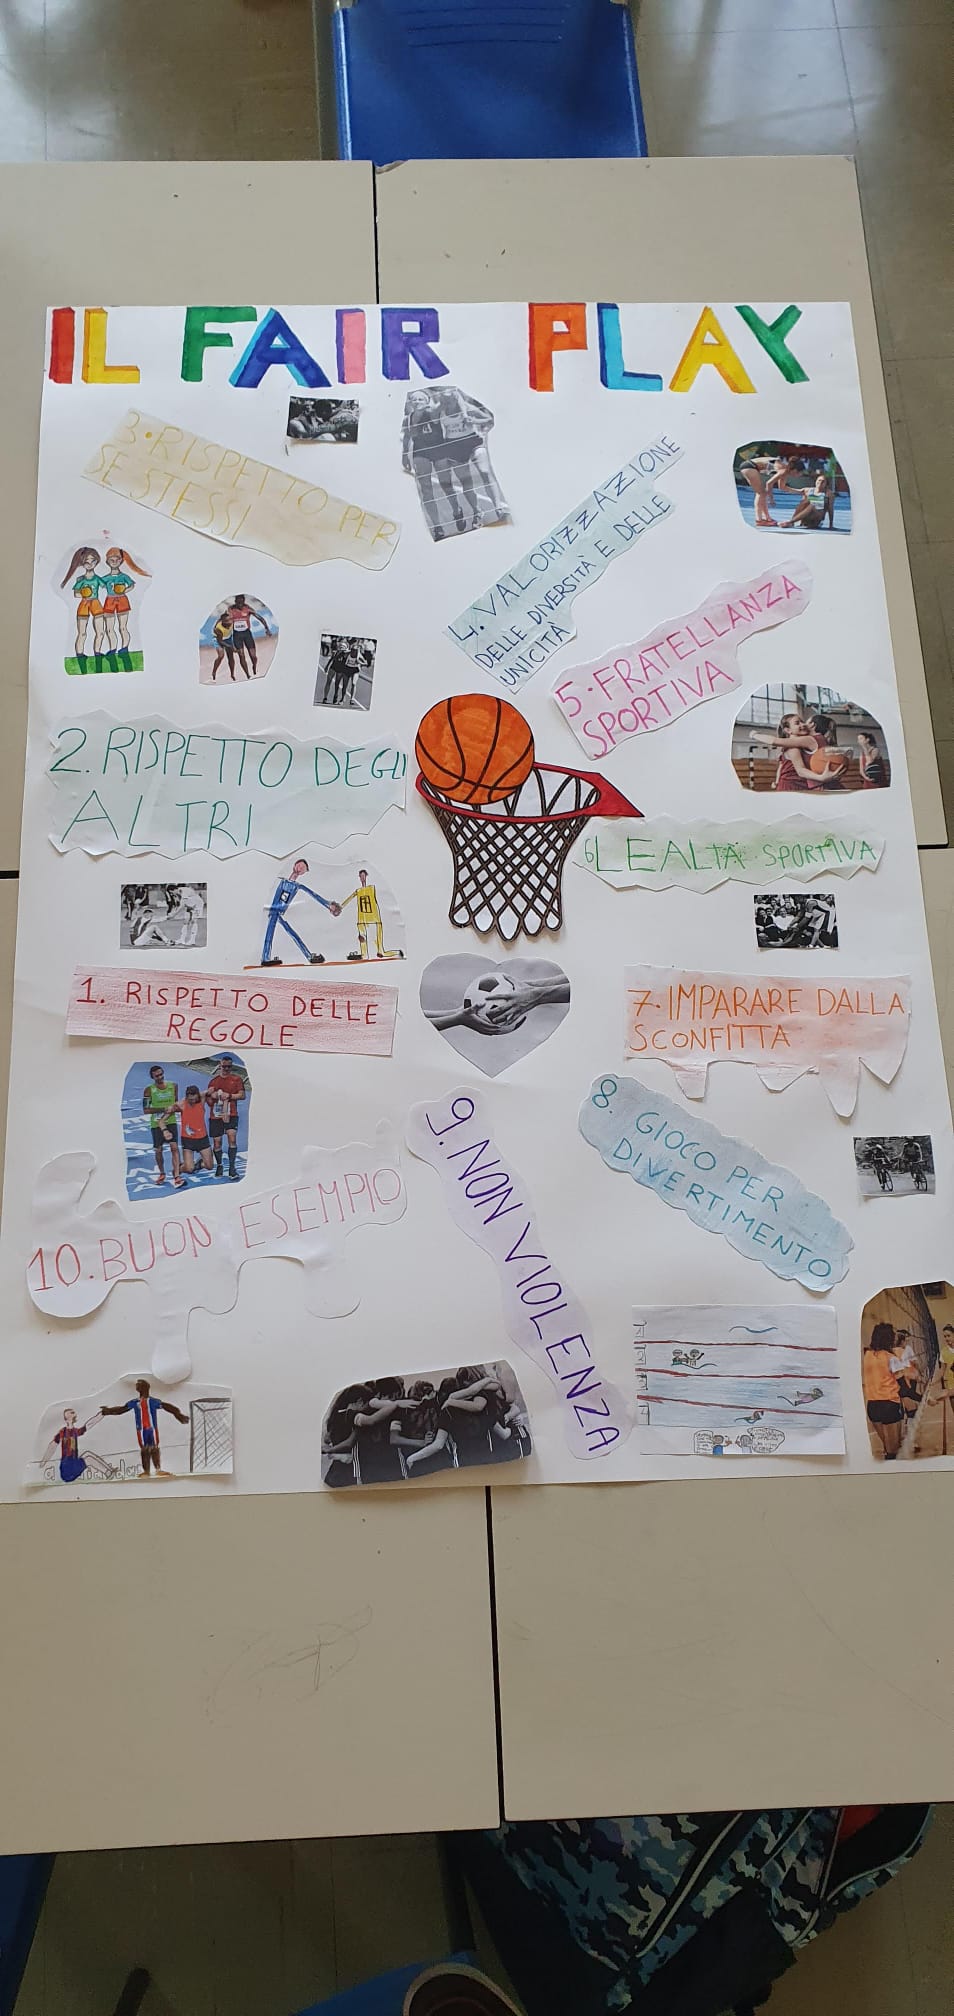 IL FAIR PLAY
3. RISPETTO PER
SE STESSI
4. VALORIZZAZIONE
DELLE DIVERSITÀ E DELLE
UNICITÀ
5. FRATELLANZA
SPORTIVA
2. RISPETTO DEGLI
ALTRI
6 LEALTÀ SPORTIVA
1. RISPETTO DELLE
REGOLE
7. IMPARARE DALLA
SCONFITTA
8. GIOCO PER
DIVERTIMENTO
9. NON VIOLENZA
10. BUON ESEMPIO